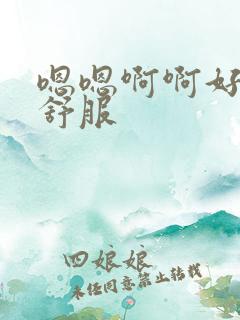 嗯嗯啊啊好
舒服
四娘娘
未经同意禁止转载